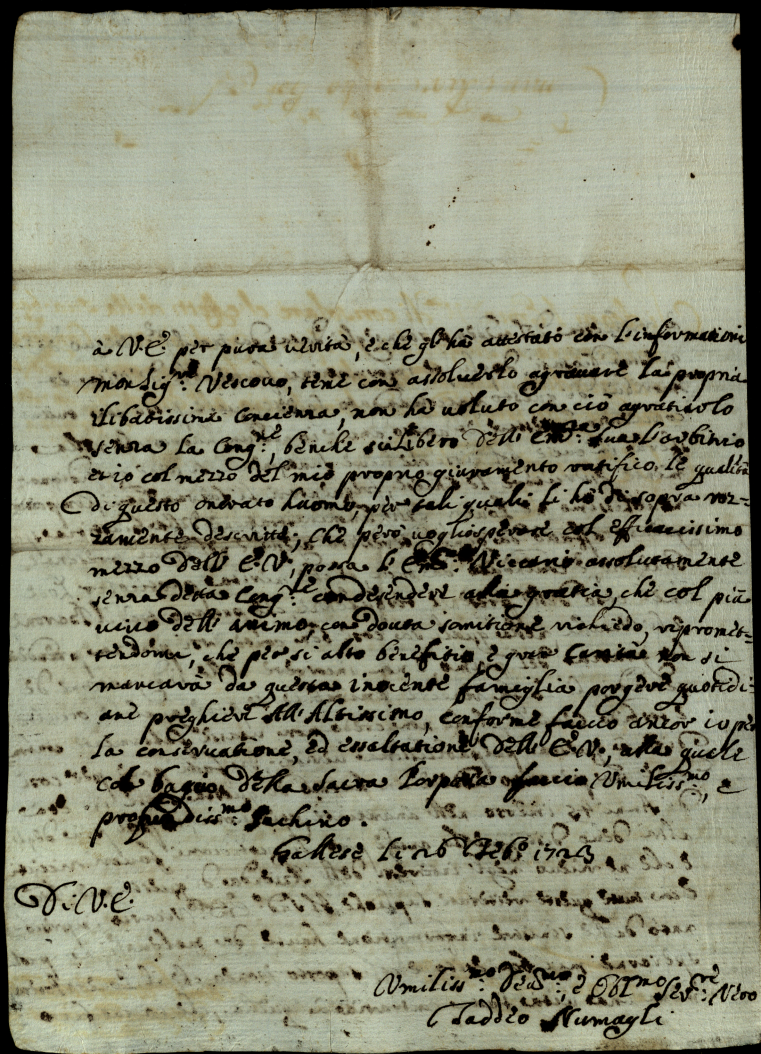 à V.E. per pura verità, e che gl'ha attestato con l'informationi
Monsig.re Vescovo, teme con assolverlo agravare la propria
illibatissima Concienza, non ha voluto con ciò agratiarlo
senza la Cong.ne, benche sia libero dell'Em.za Sua l'arbitrio
et io col mezzo del mio proprio giuramento ratifico le qualità
di questo onorato huomo, per tali quali li ho di sopra roz-
zamente descritte, che però voglio sperare col efficacissimo
mezzo dell'E.V., possa l'Em.mo Viccario assolutamente
senza detta Cong.ne condesendere alla gratia, che col più
vivo dell'animo, con dovuta somitione richiedo, ripromet-
tendomi, che per si alto benefitio, e gran Carità non si
mancarà da questa inocente famiglia porgere quotidi-
ane preghiere All'Altissimo, conforme faccio ancor io per
la conservatione, ed essaltatione dell'E.V., alla quale
col bagio della Sacra Porpora faccio Umiliss.mo, e
profondiss.mo Inchino.
Gallese li 26 Febo 1723
Di V.E.
Umiliss.mo Dev.mo, e Obl.mo Ser.re Vero
Taddeo Numagli